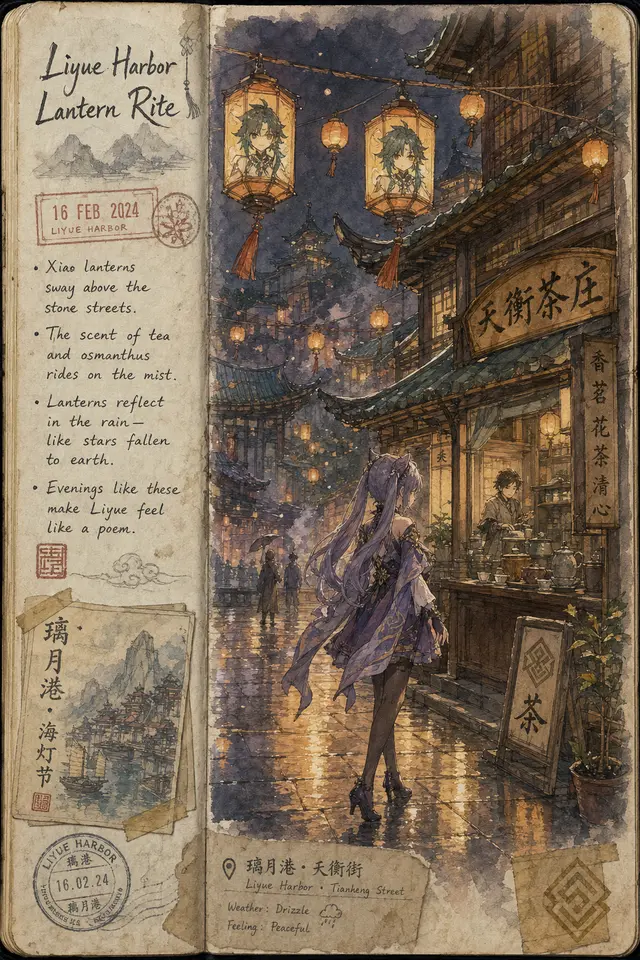 Liyue Harbor
Lantern Rite
16 FEB 2024
LIYUE HARBOR
• Xiao lanterns
sway above the
stone streets.
• The scent of tea
and osmanthus
rides on the mist.
• Lanterns reflect
in the rain—
like stars fallen
to earth.
• Evenings like these
make Liyue feel
like a poem.
璃月港·海灯节
LIYUE HARBOR
璃港
16.02.24
璃月港
天衡茶庄
香茗花茶清心
茶
璃月港·天衡街
Liyue Harbor • Tianheng Street
Weather: Drizzle
Feeling: Peaceful